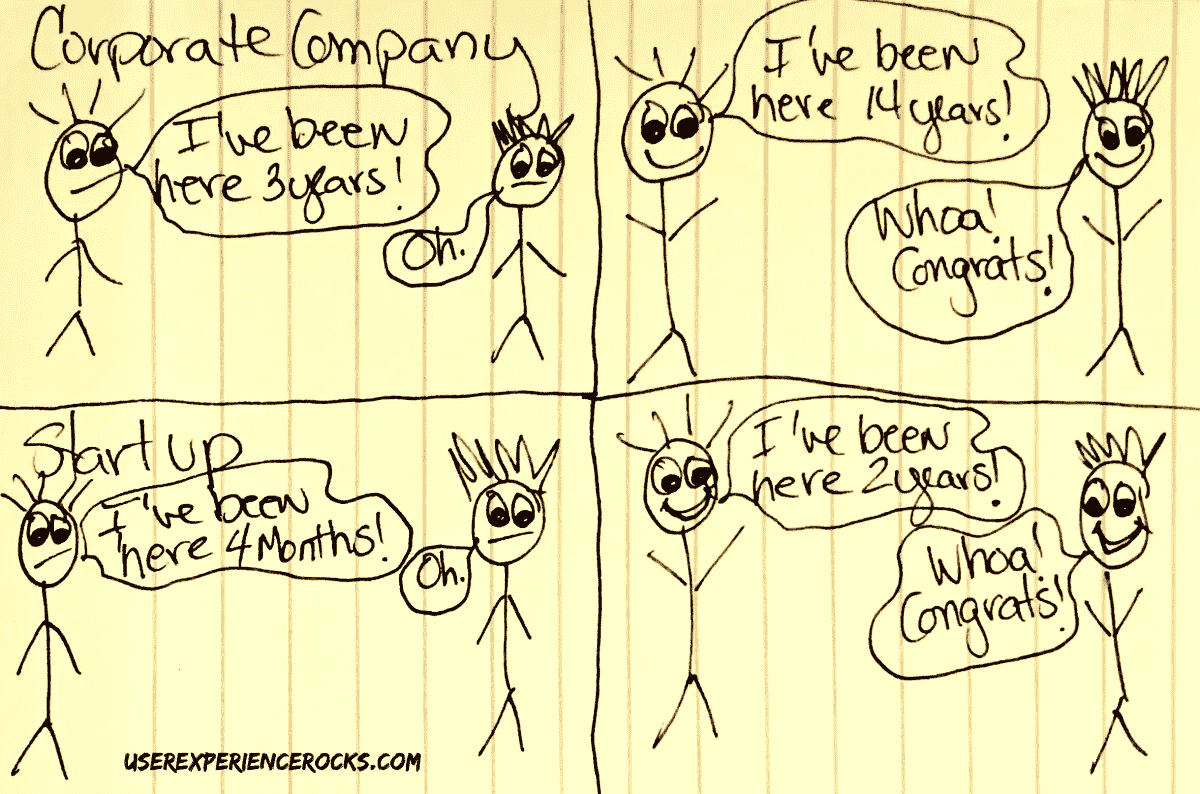 Corporate Company
I've been
here 3 years!
Oh.
I've been
here 14 years!
Whoa!
Congrats!
Start up
I've been
here 4 Months!
Oh.
I've been
here 2 years!
Whoa!
Congrats!
USEREXPERIENCEROCKS.COM